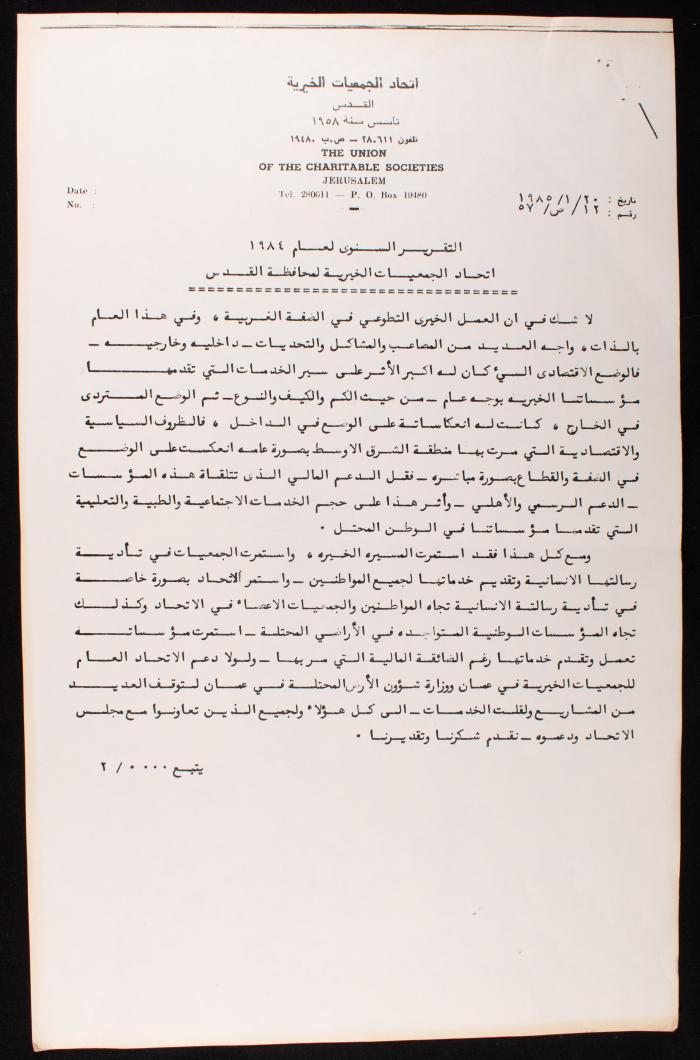 اتحاد الجمعيات الخيرية
القدس
تأسس سنة ١٩٥٨
تلفون ٢٨٠٦١١ – ص.ب ١٩٤٨٠
THE UNION
OF THE CHARITABLE SOCIETIES
JERUSALEM
Tel. 280611 — P. O. Box 19480
Date :
No. :
تاريخ : ١٩٨٥/١/٢٠
رقم : ١٢/ص/٥٧
التقرير السنوى لعام ١٩٨٤
اتحاد الجمعيات الخيرية لمحافظة القدس
==================================
لا شك في ان العمل الخيرى التطوعي في الضفة الغربية ، وفي هذا العام
بالذات ، واجه العديد من المصاعب والمشاكل والتحديات – داخليه وخارجيه –
فالوضع الاقتصادى السيء كان له اكبر الأثر على سير الخدمات التي تقدمها
مؤسساتنا الخيريه بوجه عام – من حيث الكم والكيف والنوع – ثم الوضع المتردى
في الخارج ، كانت له انعكاساتة على الوضع في الداخل ، فالظروف السياسية
والاقتصادية التي مرت بها منطقة الشرق الاوسط بصورة عامه انعكست على الوضع
في الضفة والقطاع بصورة مباشره – فقل الدعم المالي الذى تتلقاة هذه المؤسسات
– الدعم الرسمي والأهلي – وأثر هذا على حجم الخدمات الاجتماعية والطبية والتعليمية
التي تقدمها مؤسساتنا في الوطن المحتل .
ومع كل هذا فقد استمرت المسيره الخيره ، واستمرت الجمعيات في تأدية
رسالتها الانسانية وتقديم خدماتها لجميع المواطنين – واستمر الاتحاد بصورة خاصة
في تأدية رسالتة الانسانية تجاه المواطنين والجمعيات الاعضاء في الاتحاد وكذلك
تجاه المؤسسات الوطنية المتواجده في الأراضي المحتلة – استمرت مؤسساته
تعمل وتقدم خدماتها رغم الضائقة المالية التي مر بها – ولولا دعم الاتحاد العام
للجمعيات الخيرية في عمان ووزارة شؤون الأرض المحتلة في عمان لتوقف العديد
من المشاريع ولقلت الخدمات – الى كل هؤلاء ولجميع الذين تعاونوا مع مجلس
الاتحاد ودعموه – نقدم شكرنا وتقديرنا .
يتبع ٠٠٠٠ / ٢